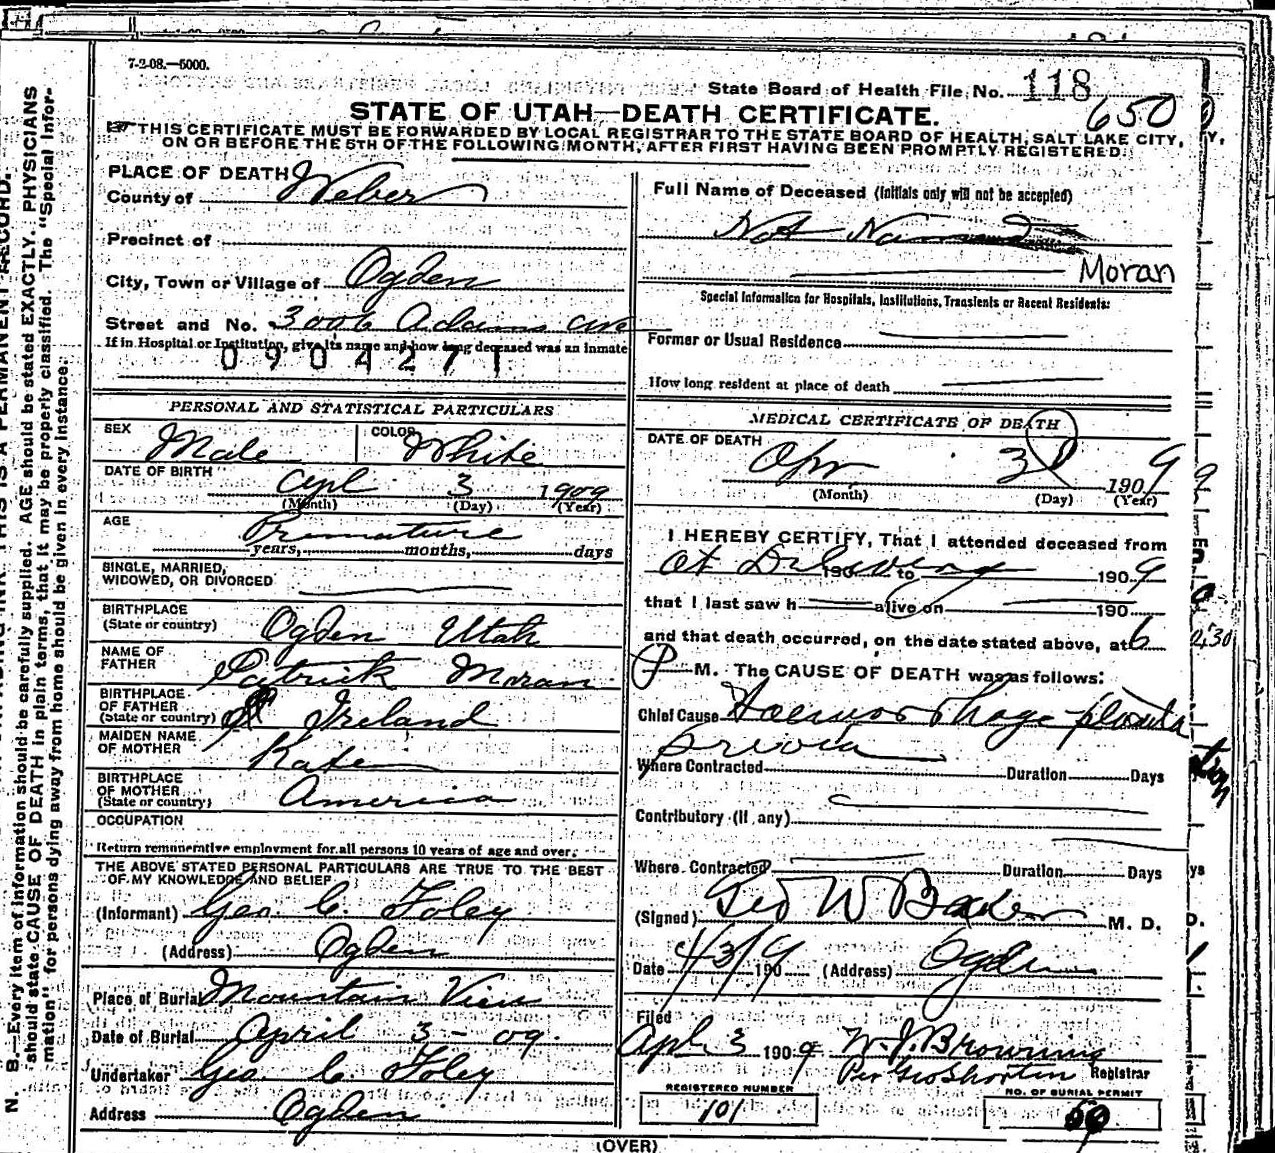 7-2-08.—5000.
State Board of Health File No. 118
650
STATE OF UTAH—DEATH CERTIFICATE.
THIS CERTIFICATE MUST BE FORWARDED BY LOCAL REGISTRAR TO THE STATE BOARD OF HEALTH, SALT LAKE CITY,
ON OR BEFORE THE 5TH OF THE FOLLOWING MONTH, AFTER FIRST HAVING BEEN PROMPTLY REGISTERED.
PLACE OF DEATH
County of Weber
Precinct of
City, Town or Village of Ogden
Street and No. 3006 Adams ave
If in Hospital or Institution, give its name and how long deceased was an inmate
0904271
PERSONAL AND STATISTICAL PARTICULARS
SEX Male COLOR White
DATE OF BIRTH Apl 3 1909
(Month) (Day) (Year)
AGE Premature
years, months, days
SINGLE, MARRIED,
WIDOWED, OR DIVORCED
BIRTHPLACE
(State or country) Ogden Utah
NAME OF
FATHER Patrick Moran
BIRTHPLACE
OF FATHER
(State or country) Ireland
MAIDEN NAME
OF MOTHER Kate
BIRTHPLACE
OF MOTHER
(State or country) America
OCCUPATION
Return remunerative employment for all persons 10 years of age and over.
THE ABOVE STATED PERSONAL PARTICULARS ARE TRUE TO THE BEST
OF MY KNOWLEDGE AND BELIEF
(Informant) Geo. C. Foley
(Address) Ogden
Place of Burial Mountain View
Date of Burial April 3 - 09.
Undertaker Geo C Foley
Address Ogden
Full Name of Deceased (Initials only will not be accepted)
Not Named
Moran
Special Information for Hospitals, Institutions, Transients or Recent Residents:
Former or Usual Residence
How long resident at place of death
MEDICAL CERTIFICATE OF DEATH
DATE OF DEATH
Apr 3 1909
(Month) (Day) (Year)
I HEREBY CERTIFY, That I attended deceased from
at 190 to 1909
that I last saw h alive on 190
and that death occurred, on the date stated above, at 6
P M. The CAUSE OF DEATH was as follows:
Chief Cause Haemorrhage placenta
previa
Where Contracted Duration Days
Contributory (if any)
Where Contracted Duration Days
(Signed) Geo W Baker M. D.
Date 4/3/1909 (Address) Ogden
Filed
Apl 3 1909 W. J. Browning
Per Geo Shorten Registrar
REGISTERED NUMBER
101
NO. OF BURIAL PERMIT
(OVER)
N. B.—Every item of information should be carefully supplied. AGE should be stated EXACTLY. PHYSICIANS
should state CAUSE OF DEATH in plain terms, that it may be properly classified. The "Special Infor-
mation" for persons dying away from home should be given in every instance.